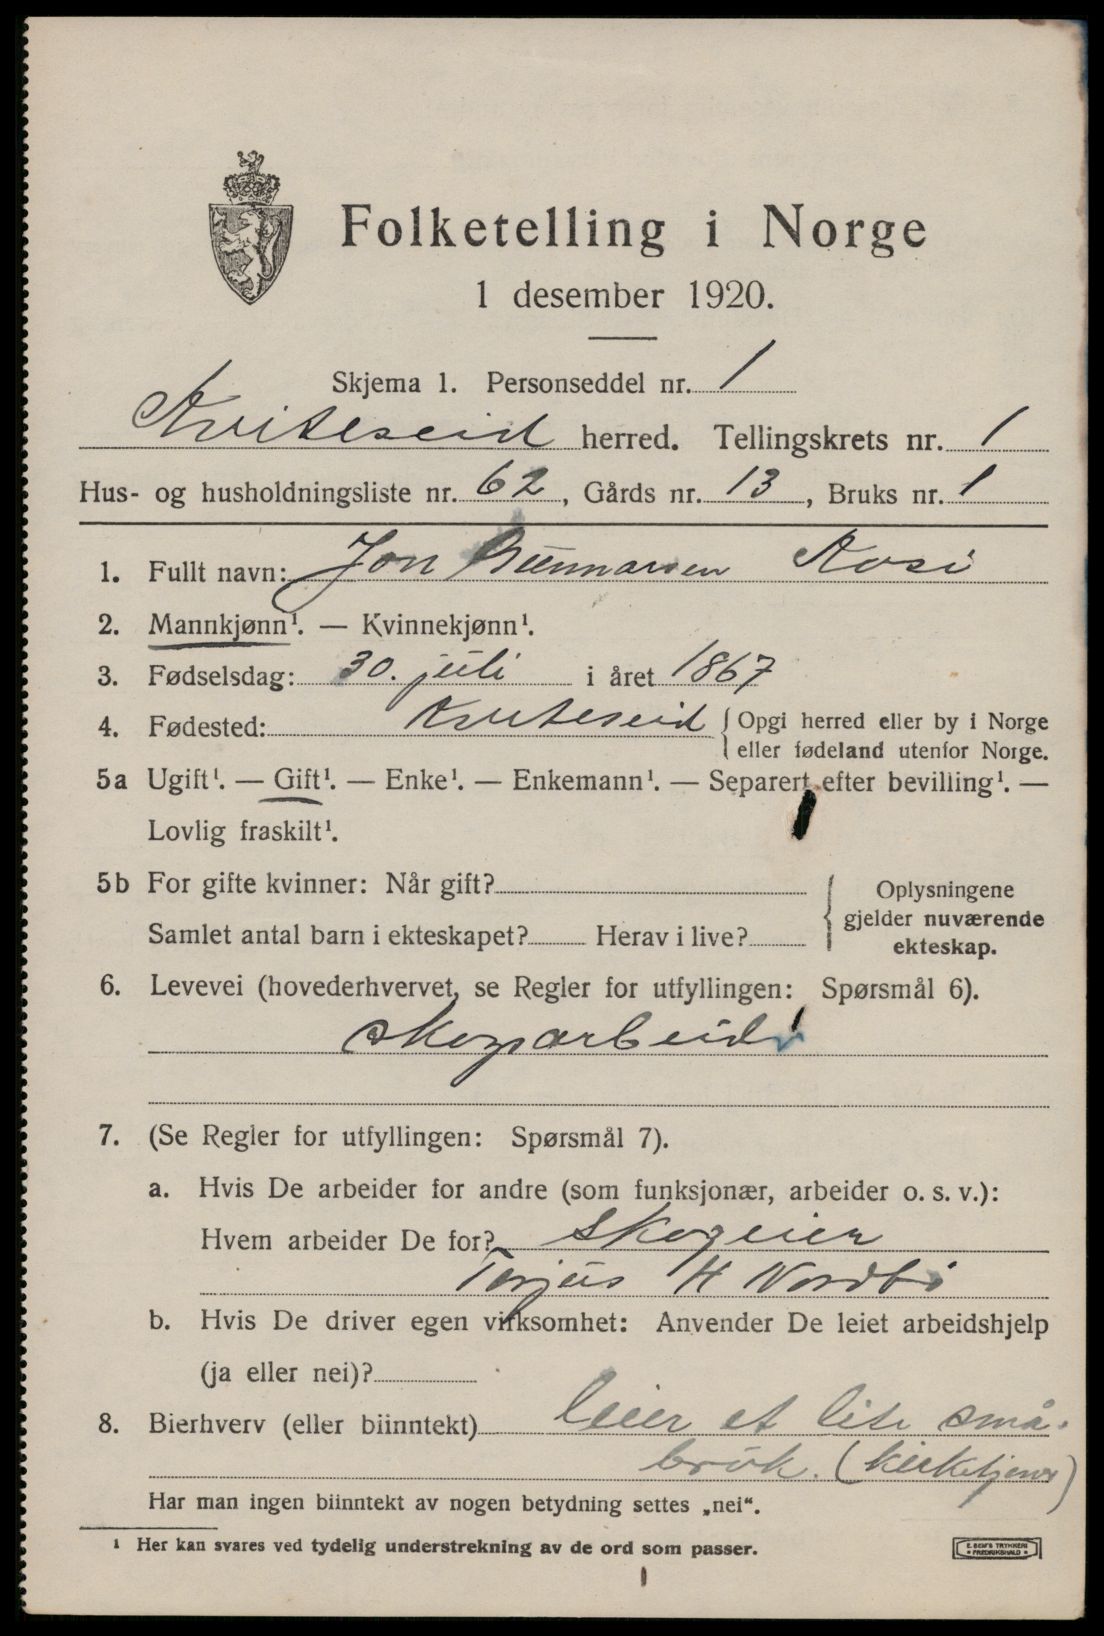 Folketelling i Norge
1 desember 1920.
Skjema 1. Personseddel nr. 1
Kviteseid herred. Tellingskrets nr. 1
Hus- og husholdningsliste nr. 62, Gårds nr. 13, Bruks nr. 1
1. Fullt navn: Jon Gunnarsen Kosi
2. Mannkjønn¹. — Kvinnekjønn¹.
3. Fødselsdag: 30. juli i året 1867
4. Fødested: Kviteseid { Opgi herred eller by i Norge
eller fødeland utenfor Norge.
5a Ugift¹. — Gift¹. — Enke¹. — Enkemann¹. — Separert efter bevilling¹. —
Lovlig fraskilt¹.
5b For gifte kvinner: Når gift?
Samlet antal barn i ekteskapet? Herav i live?
{ Oplysningene
gjelder nuværende
ekteskap.
6. Levevei (hovederhvervet, se Regler for utfyllingen: Spørsmål 6).
skogsarbeider
7. (Se Regler for utfyllingen: Spørsmål 7).
a. Hvis De arbeider for andre (som funksjonær, arbeider o. s. v.):
Hvem arbeider De for? Skogeier
Torjus H Nordbø
b. Hvis De driver egen virksomhet: Anvender De leiet arbeidshjelp
(ja eller nei)?
8. Bierhverv (eller biinntekt) leier et lite små-
bruk. (kirketjener)
Har man ingen biinntekt av nogen betydning settes „nei“.
¹ Her kan svares ved tydelig understrekning av de ord som passer.
E. SEM'S TRYKKERI
• FREDRIKSHALD •